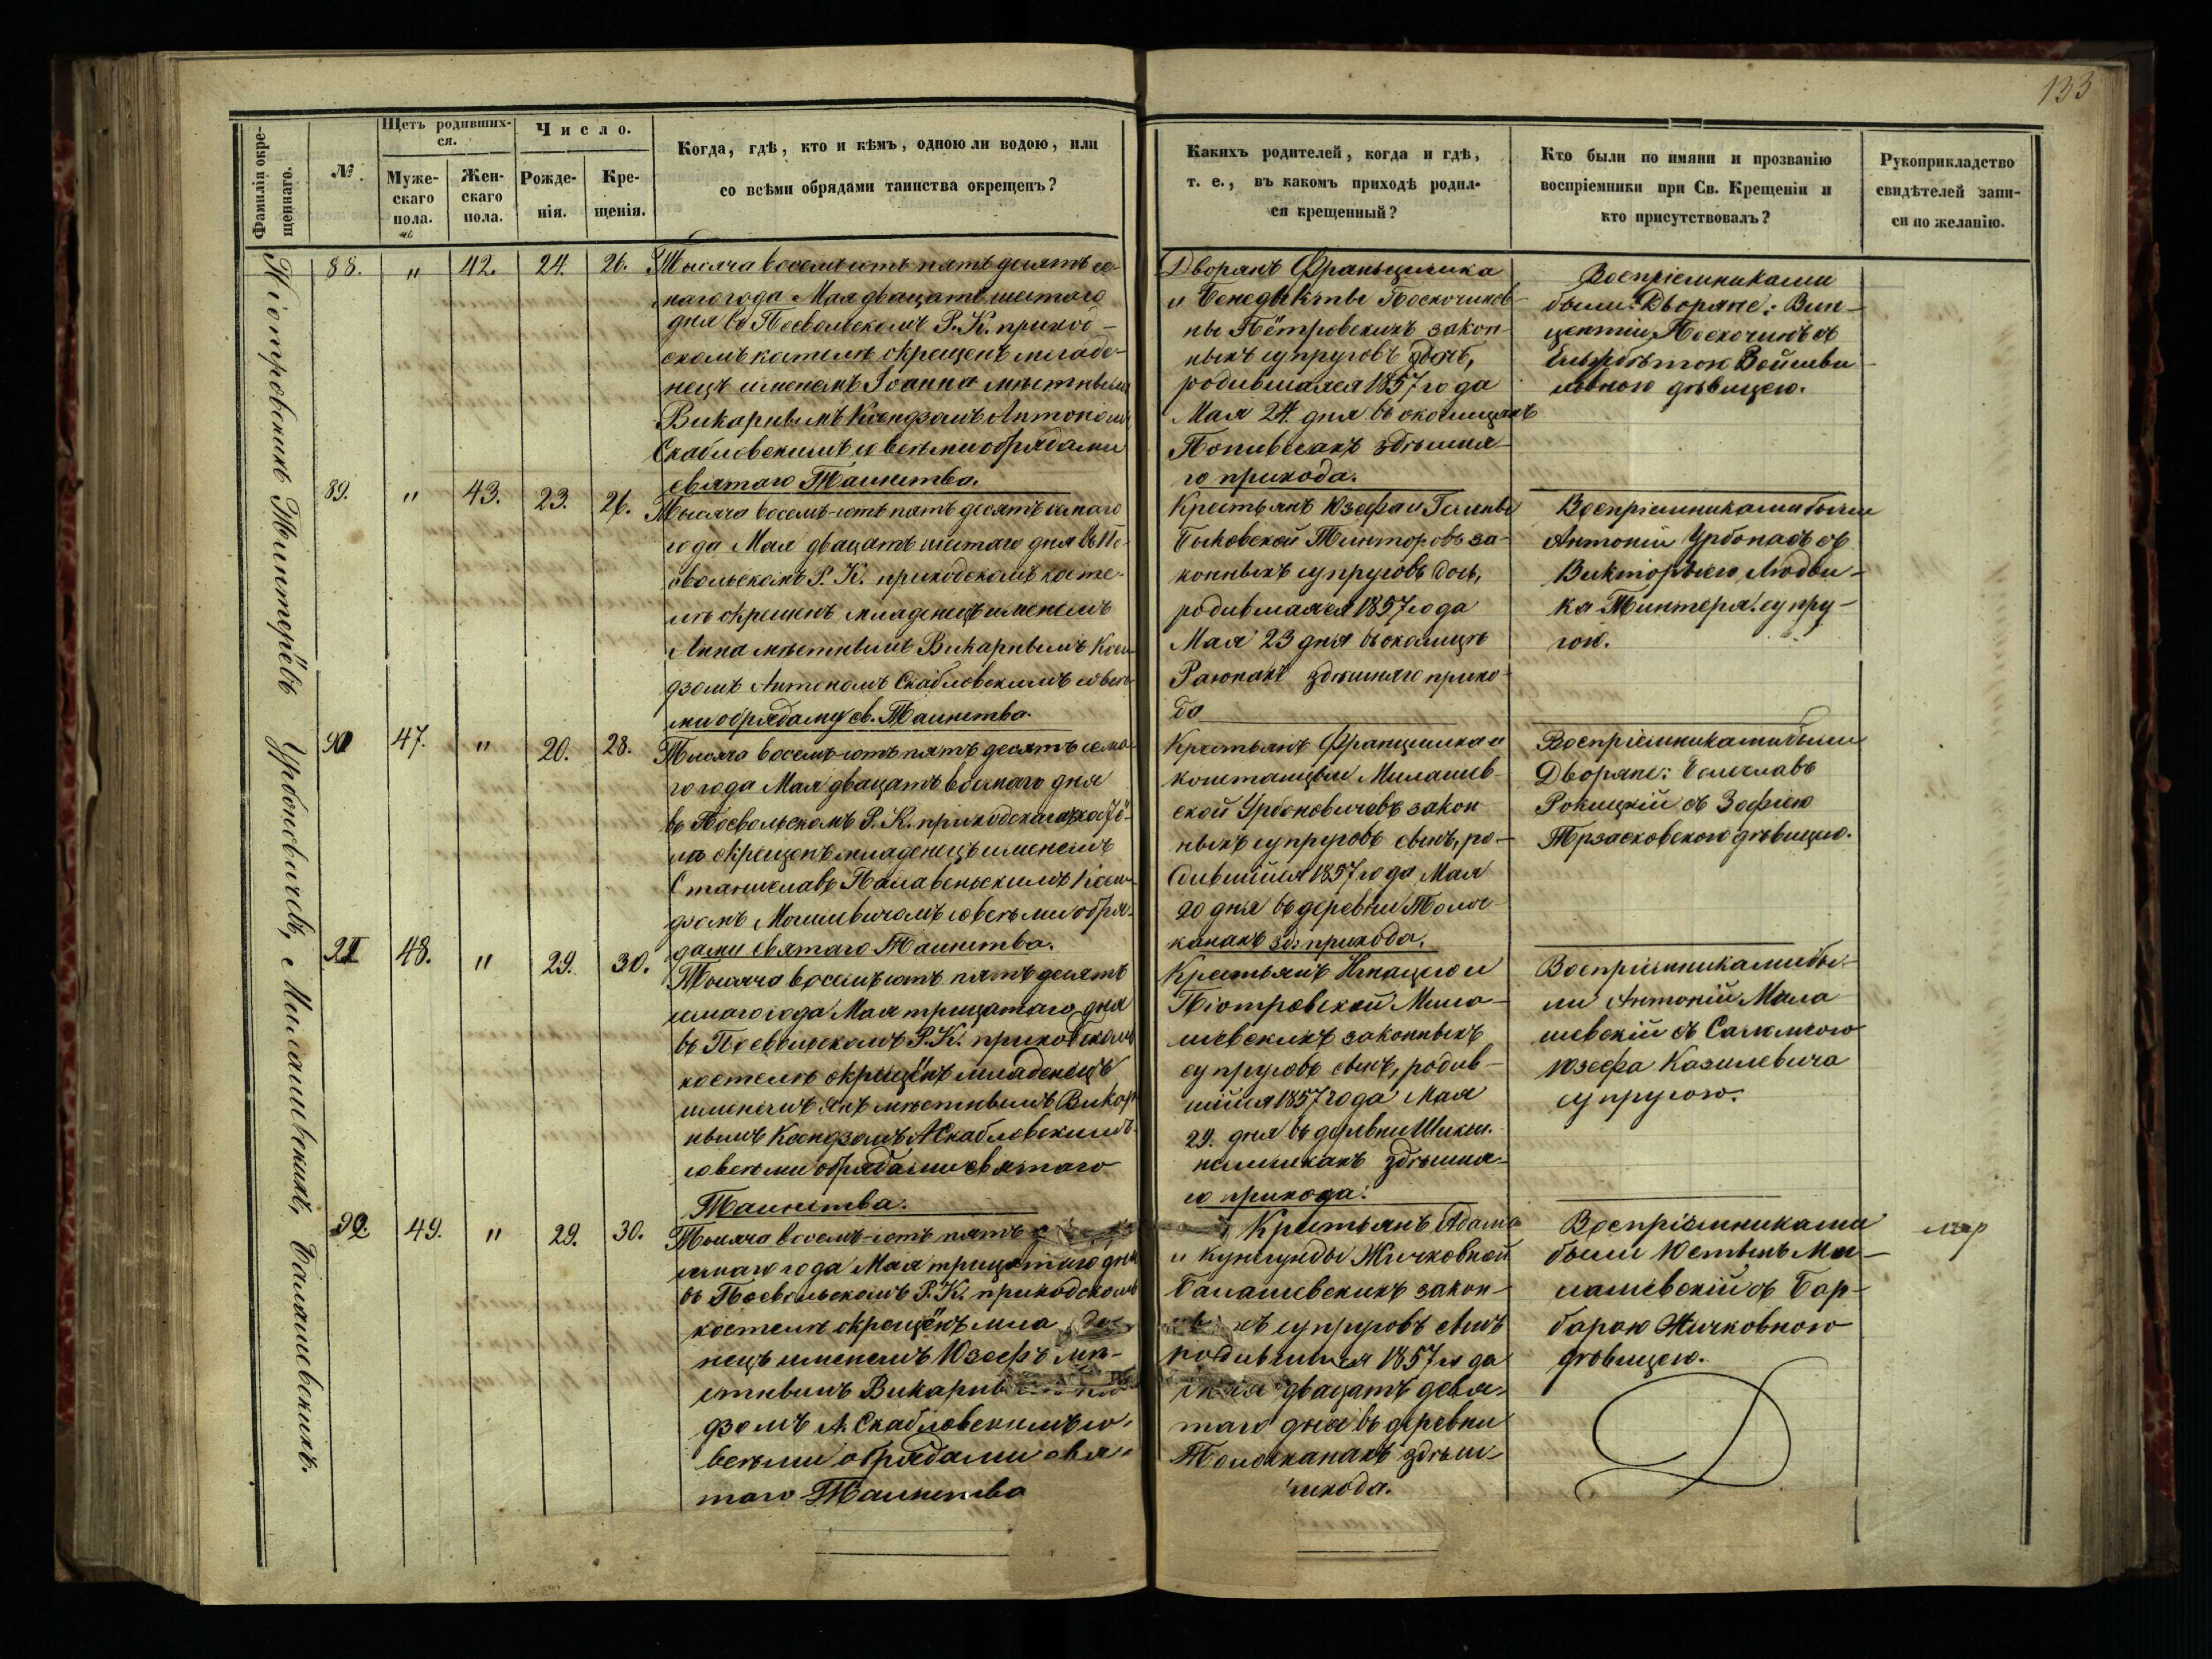 133
Фамилія окре-
щеннаго.
№.
Щетъ родивших-
ся.
Муже-
скаго
пола.
Жен-
скаго
пола.
Число.
Рожде-
нія.
Кре-
щенія.
Когда, гдѣ, кто и кѣмъ, одною ли водою, или
со всѣми обрядами таинства окрещенъ?
Какихъ родителей, когда и гдѣ,
т. е., въ какомъ приходѣ родил-
ся крещенный?
Кто были по имяни и прозванію
воспріемники при Св. Крещеніи и
кто присутствовалъ?
Рукоприкладство
свидѣтелей запи-
си по желанію.
Піотровскихъ Тынтерёвъ Урбоновичевъ, Милашевскихъ, Балашевскихъ.
88. " 42. 24. 26.
Тысяча восемъсотъ пятьдесятъ се-
маго года Мая двацать шестаго
дня въ Посвольскомъ Р. К. приход-
скомъ костелѣ окрещенъ младе-
нецъ именемъ Іоанна мѣстнымъ
Викарнымъ Ксендзомъ Антоніомъ
Скабловскимъ со всѣми обрядами
святаго Таинства.
Дворянъ Францишка
и Бенедыкты Поскочинов-
ны Пётровскихъ закон-
ныхъ супруговъ дочь,
родившаяся 1857 года
Мая 24. дня въ околицахъ
здѣшня-
го прихода.
Воспріемниками
были: Дворяне: Вин-
центій Поскочинъ съ
дѣвицею.
89. " 43. 23. 26.
Тысяча восемъ-сотъ пять десятъ семаго
года Мая двацать шестаго дня въ По-
свольскомъ Р. К. приходскомъ косте-
лѣ окрещенъ младенецъ именемъ
Анна мѣстнымъ Викарнымъ Ксен-
дзомъ Антономъ Скабловскимъ со всѣ-
ми обрядами св. Таинства.
Крестьянъ Юзефа и
за-
конныхъ супруговъ дочь,
родившаяся 1857 года
Мая 23 дня въ околицѣ
здѣшняго прихо-
да
Воспріемниками были
Антоній Урбонасъ съ
Викторыею Людви-
ка Тынтера супру-
гою.
90 47. " 20. 28.
Тысяча восемъ-сотъ пять десятъ сема-
го года Мая двацать восмаго дня
въ Посвольскомъ Р. К. приходскомъ костё-
лѣ окрещенъ младенецъ именемъ
Станиславъ Ксен-
дзомъ со всѣми обря-
дами святаго Таинства.
Крестьянъ Францишка и
Констанціи Милашев-
ской Урбоновичевъ закон-
ныхъ супруговъ сынъ, ро-
дившійся 1857 года Мая
20 дня въ деревни Толоч-
канахъ зд: прихода.
Воспріемниками были
Дворяне: Болеславъ
Рокицкій съ Зофіею
Трзасковскою дѣвицею.
91 48. " 29. 30.
Тысяча восемъ сотъ пять десятъ
семаго года Мая трицатаго дня
въ Посвольскомъ Р. К. приходскомъ
костелѣ окрещёнъ младенецъ
именемъ Янъ мѣстнымъ Викар-
нымъ Ксендзомъ А Скабловскимъ
со всѣми обрядами святаго
Таинства.
Крестьянъ Игнацего и
Піотровской Мила-
шевскихъ законныхъ
супруговъ сынъ, родив-
шійся 1857 года Мая
29. дня въ деревни
здѣшня-
го прихода.
Воспріемниками бы-
ли Антоній Мила
шевскій съ Саломеею
Юзефа Казимевича
супругою.
92. 49. " 29. 30.
Тысяча восемъ-сотъ пять
семаго года Мая трицатаго дня
въ Посвольскомъ Р. К. приходскомъ
костелѣ окрещёнъ мла де-
нецъ именемъ Юзефъ мѣ-
стнымъ Викарны
дзомъ А. Скабловскимъ со
всѣми обрядами свя-
таго Таинства
Крестьянъ Адама
и Кунегунды Жичковной
Балашевскихъ закон-
хъ супруговъ сынъ
родившійся 1857 года
двацать девя-
таго дня въ деревни
Толочканахъ здѣш-
прихода.
Воспріемниками
были Юстынъ Ми-
лашевскій съ Бар-
барою Жичковною
дѣвицею.